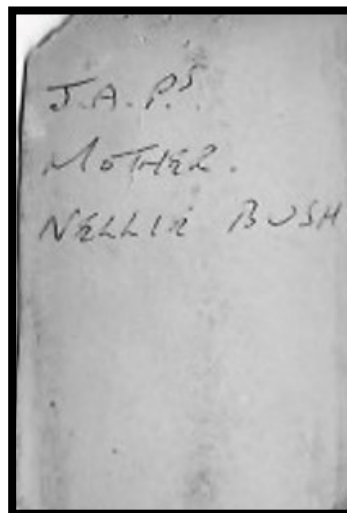 J.A.P.S
MOTHER.
NELLIE BUSH